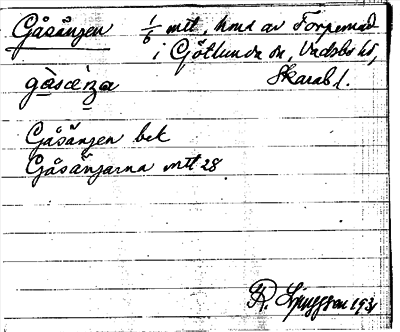 Gåsängen 1/6 mtl, hmd av Torpemad
i Götlunda sn, Vadsbo hd,
Skarab l.
gåsæŋa
Gåsängen bek
Gåsängarna mtl 28
R. 1931